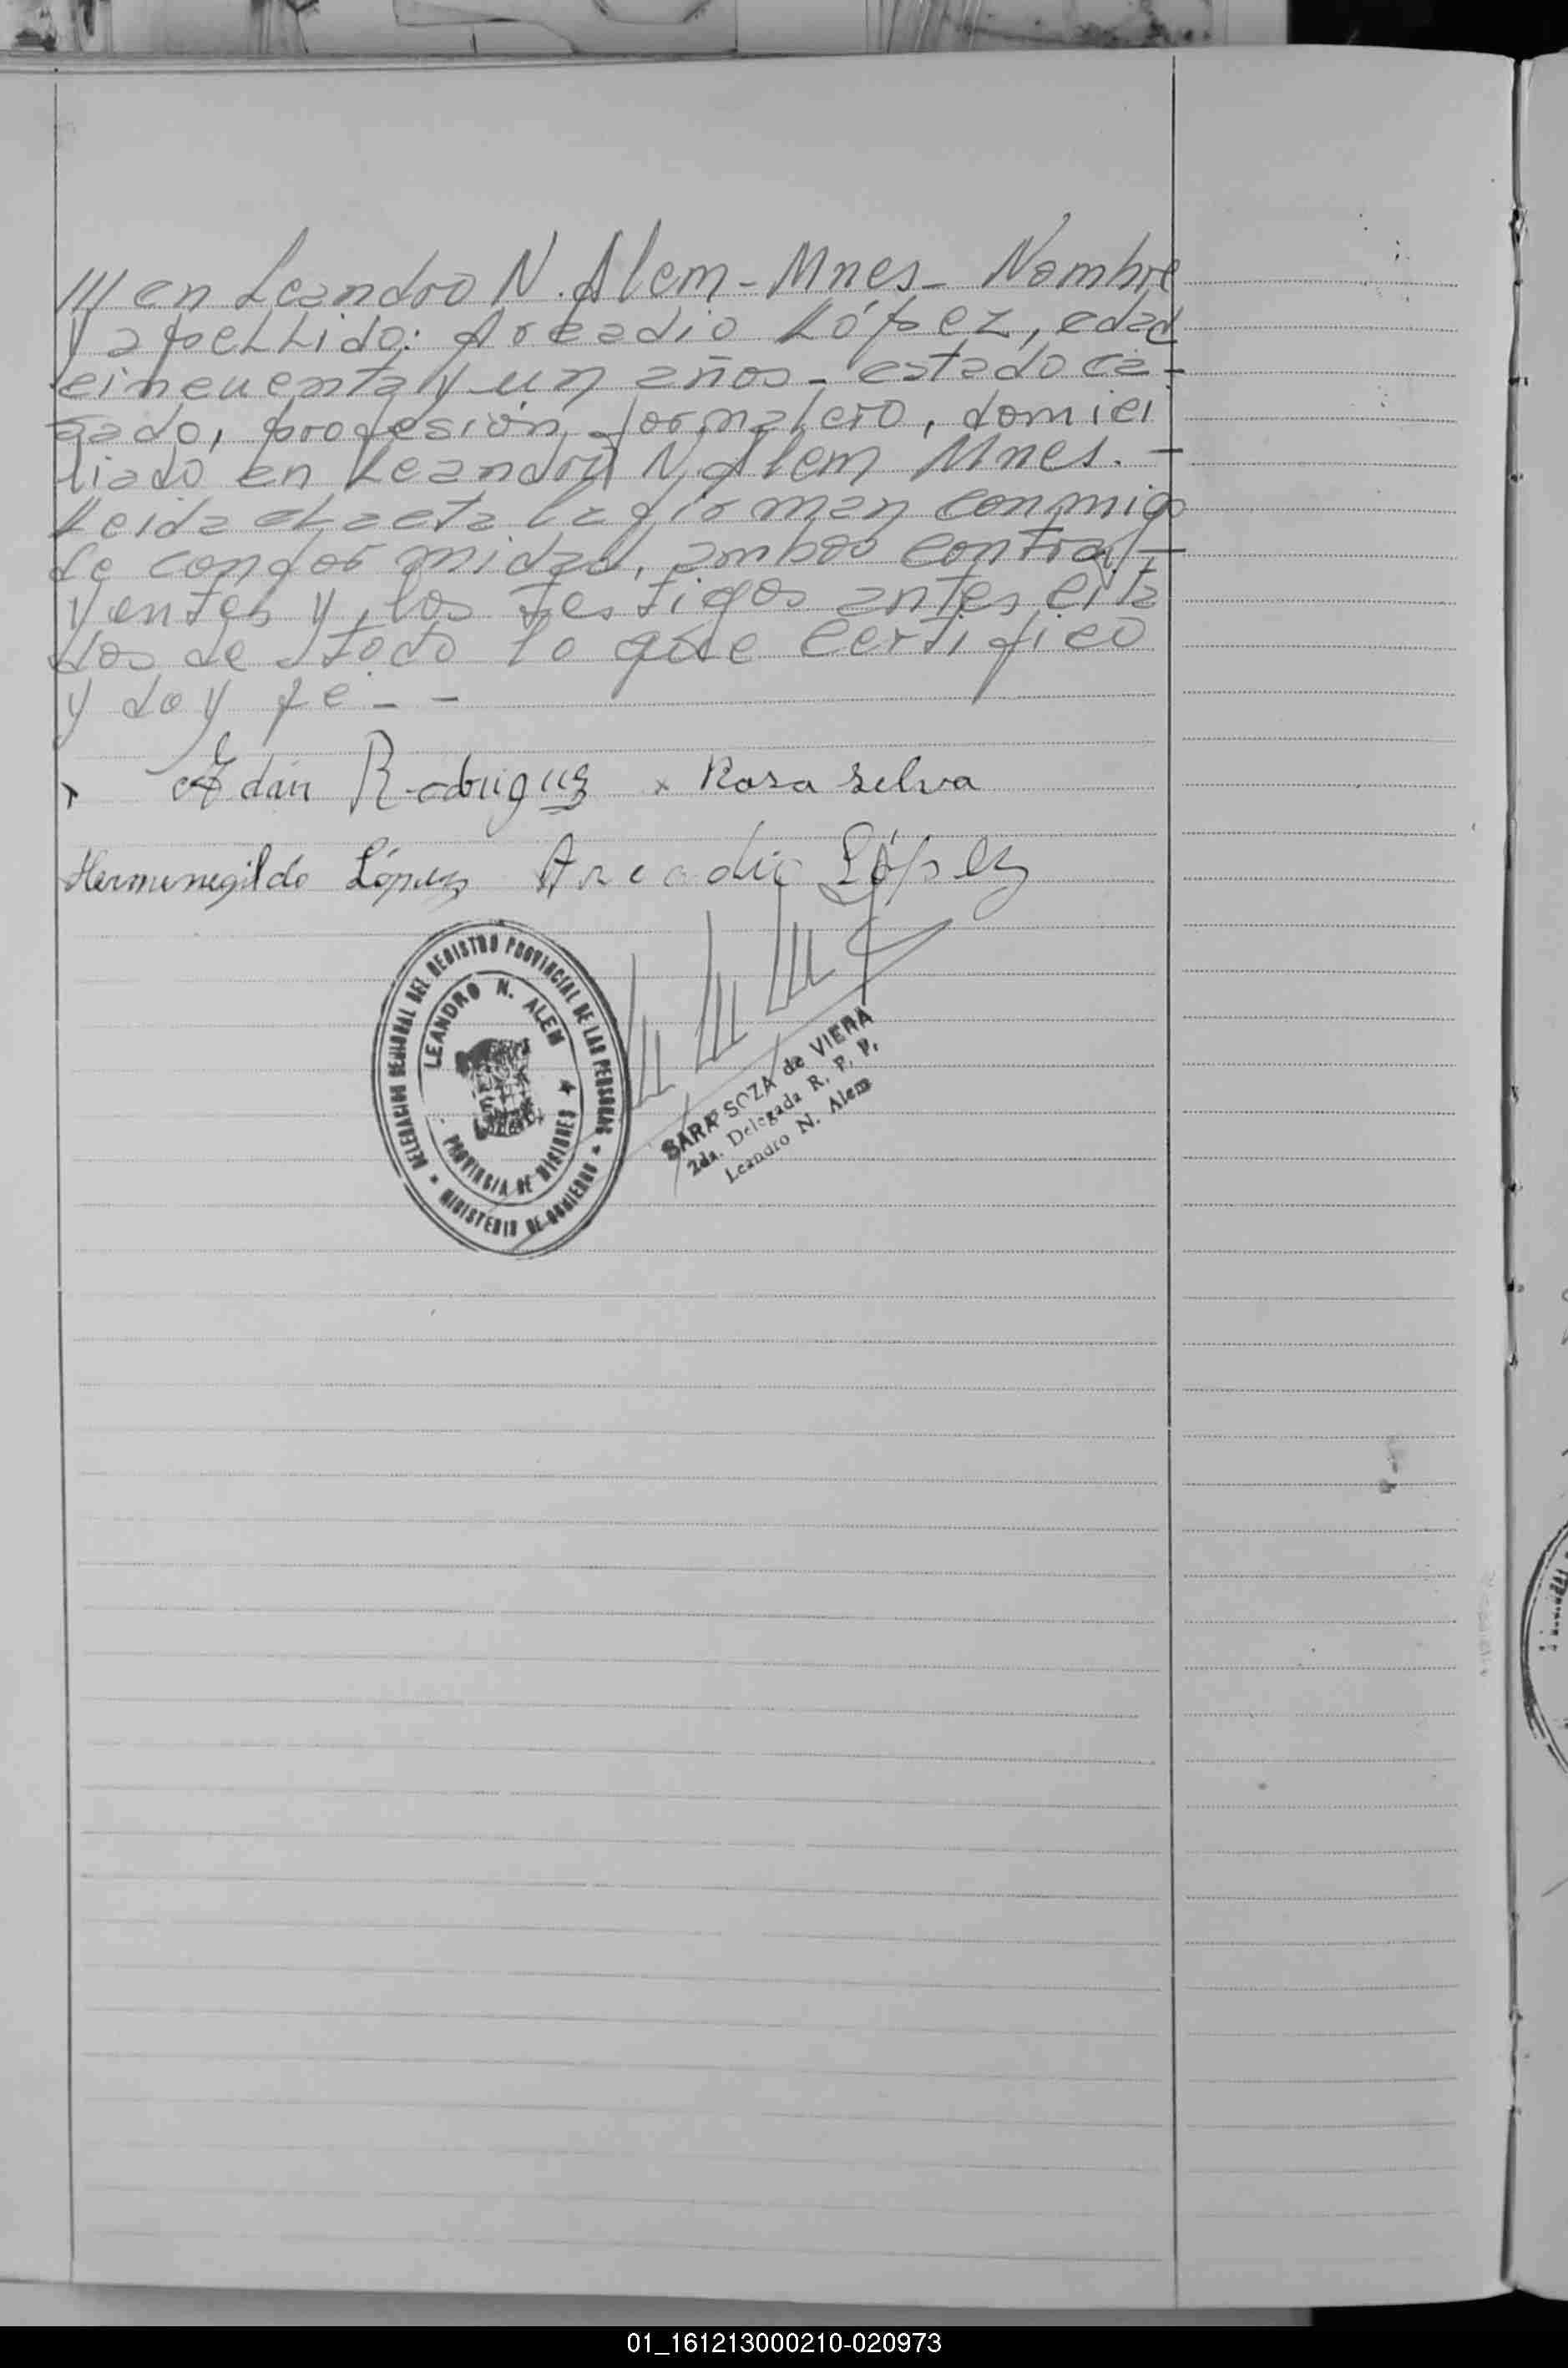 /// en Leandro N. Alem - Mnes - Nombre
y apellido: Arcadio López, edad
cincuenta y un años - estado ca-
sado, profesión jornalero, domici
liado en Leandro N. Alem Mnes. -
Leida el acta la firman conmigo
de conformidad, ambos contra-
yentes y los testigos antes cita
dos de todo lo que certifico
y doy fe - -
Adán Rodriguez x Rosa Selva
Hermenegildo López Arcadio López
DELEGACION REGIONAL DEL REGISTRO PROVINCIAL DE LAS PERSONAS
LEANDRO N. ALEM
PROVINCIA DE MISIONES
MINISTERIO DE GOBIERNO
SARA SOZA de VIERA
2da. Delegada R. P. P.
Leandro N. Alem
01_161213000210-020973